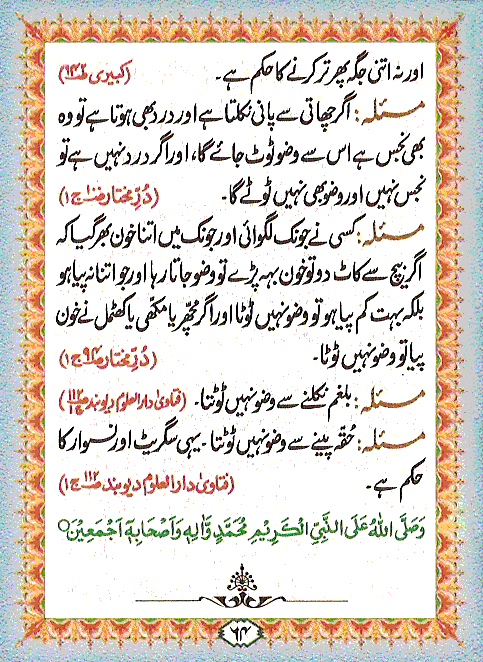 اور نہ اتنی جگہ پھر تر کرنے کا حکم ہے۔ (کبیری ص۱۴۴)
مسئلہ: اگر چھاتی سے پانی نکلتا ہے اور درد بھی ہوتا ہے تو وہ
بھی نجس ہے اس سے وضو ٹوٹ جائے گا، اور اگر درد نہیں ہے تو
نجس نہیں اور وضو بھی نہیں ٹوٹے گا۔ (دُرِّمختار ج۱)
مسئلہ: کسی نے جونک لگوائی اور جونک میں اتنا خون بھر گیا کہ
اگر بیچ سے کاٹ دو تو خون بہہ پڑے تو وضو جاتا رہا اور جو اتنا نہ پیا ہو
بلکہ بہت کم پیا ہو تو وضو نہیں ٹوٹا اور اگر مچھّر یا مکھّی یا کھٹمل نے خون
پیا تو وضو نہیں ٹوٹا۔ (دُرِّمختار ص۹۴ ج۱)
مسئلہ: بلغم نکلنے سے وضو نہیں ٹوٹتا۔ (فتاویٰ دارالعلوم دیوبند ص۱۱۲ ج۱)
مسئلہ: حُقّہ پینے سے وضو نہیں ٹوٹتا۔ یہی سگریٹ اور نسوار کا
حکم ہے۔ (فتاویٰ دارالعلوم دیوبند ص۱۱۲ ج۱)
وَصَلَّی اللّٰہُ عَلَی النَّبِیِّ الْکَرِیْمِ مُحَمَّدٍ وَّاٰلِہٖ وَاَصْحَابِہٖ اَجْمَعِیْنَ
۶۴